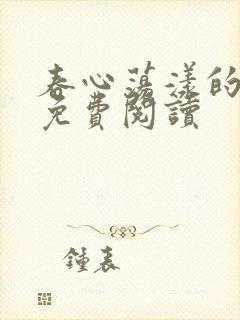 春心蕩漾的
免費閱讀
鍾表